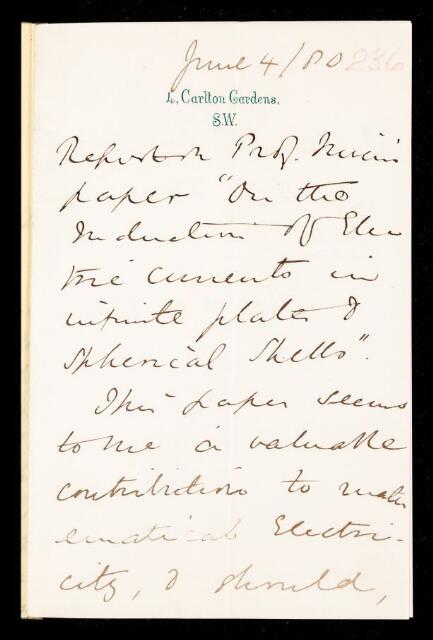 June 4/80 236
4, Carlton Gardens,
S.W.
Report on Prof. Niven's
paper "On the
Induction of Elec
tric currents in
infinite plates &
Spherical Shells".
This paper seems
to me a valuable
contribution to math
ematical Electri-
city, & should,